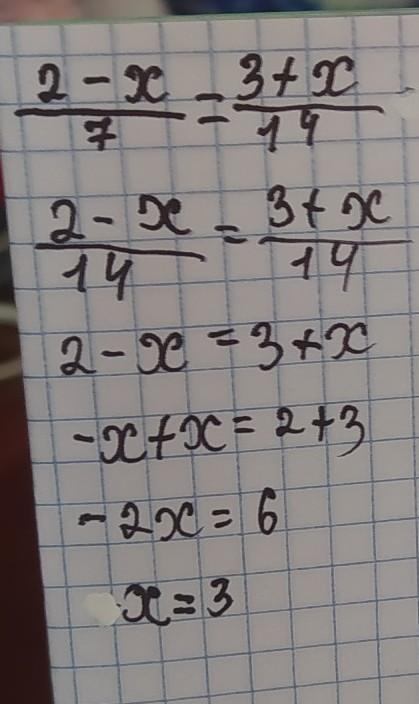 (2 - x)/7 = (3 + x)/14
(2 - x)/14 = (3 + x)/14
2 - x = 3 + x
-x + x = 2 + 3
-2x = 6
x = 3